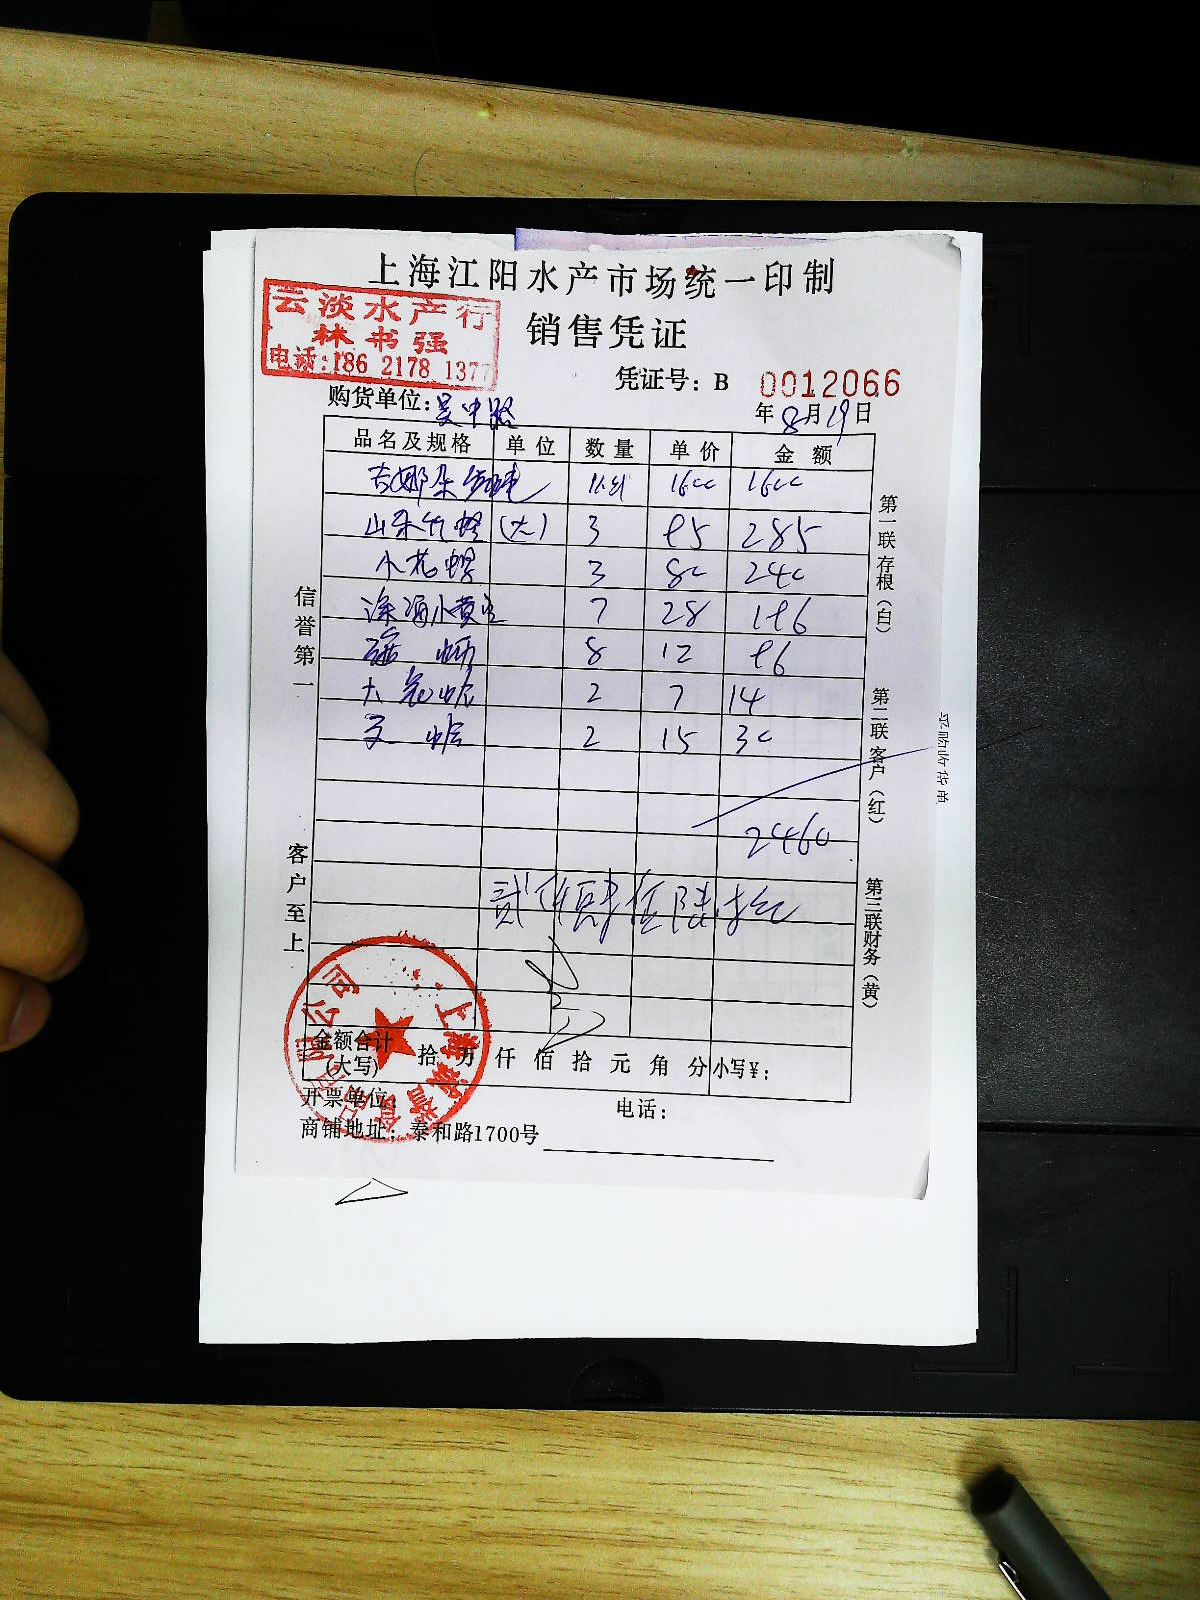 上海江阳水产市场统一印制
云淡水产行
林书强
电话:186 2178 1377
销售凭证
凭证号: B 0012066
购货单位: 吴中路
年 8月19日
品名及规格 单位 数量 单价 金额
吉娜朵 1600 1600
山东竹蛏 (大) 3 95 285
小花螺 3 80 240
深海小黄 7 28 196
8 12 96
2 7 14
文蛤 2 15 30
2460
贰仟肆佰陆拾元
金额合计(大写) 拾 万 仟 佰 拾 元 角 分 小写¥:
开票单位: 电话:
商铺地址: 泰和路1700号
信誉第一
客户至上
第一联 存根(白)
第二联 客户(红)
第三联财务(黄)
采购收货单